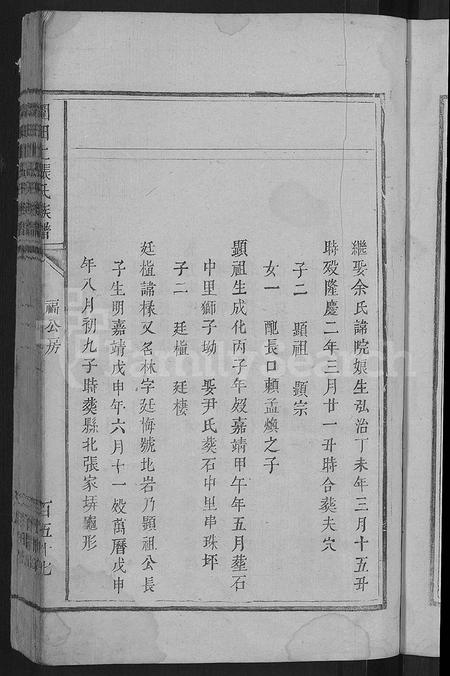 繼娶余氏諱院娘生弘治丁未年三月十五丑
時歿隆慶二年三月廿一丑時合葬夫穴
子二 顯祖 顯宗
女一 配長口賴孟煥之子
顯祖生成化丙子年歿嘉靖甲午年五月葬石
中里獅子坳 娶尹氏葬石中里串珠坪
子二 廷植 廷棲
廷植諱椂又名林字廷悔號地岩乃顯祖公長
子生明嘉靖戊申年六月十一歿萬曆戊申
年八月初九子時葬縣北張家塝龜形
張氏族譜
福公房
百五十七
FamilySearch